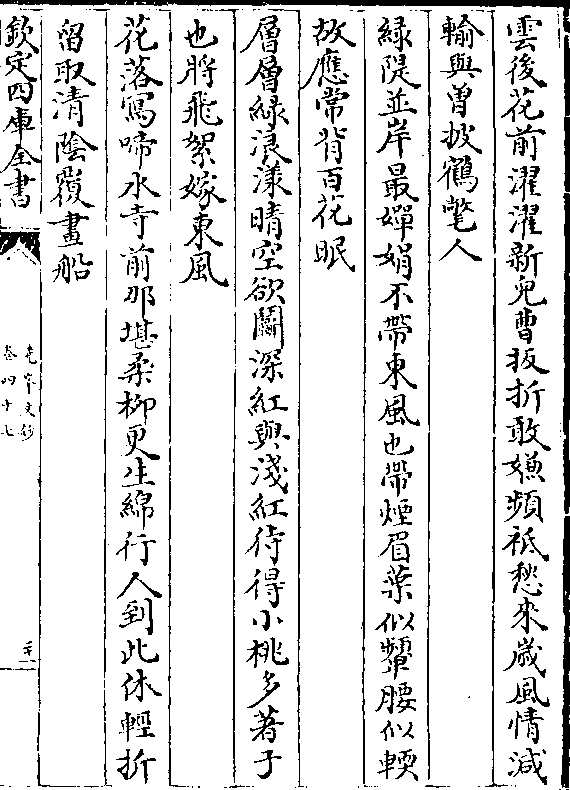 雲後花前濯濯新兒曹扳折敢嫌頻祗愁來歲風情減
輸與曾披鶴氅人
緑隄並岸最嬋娟不帶東風也帶煙眉葉似顰腰似輭
故應常背百花眠
層層緑浪漾晴空欲鬭深紅與淺紅待得小桃多著子
也將飛絮嫁東風
花落鶯啼水寺前那堪柔柳更生綿行人到此休輕折
留取清陰覆畫船
欽定四庫全書
卷四十七